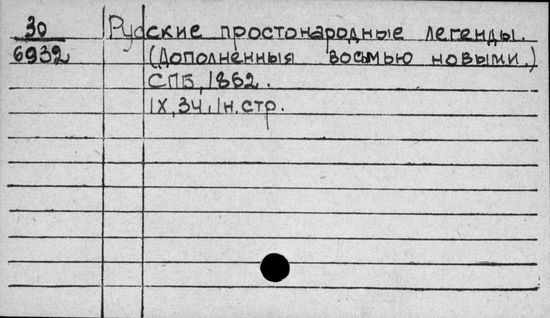 30 Русские простонародные легенды.
6932 (Дополненныя восьмью новыми.)
СПБ, 1862.
IX, 34, 1н.стр.